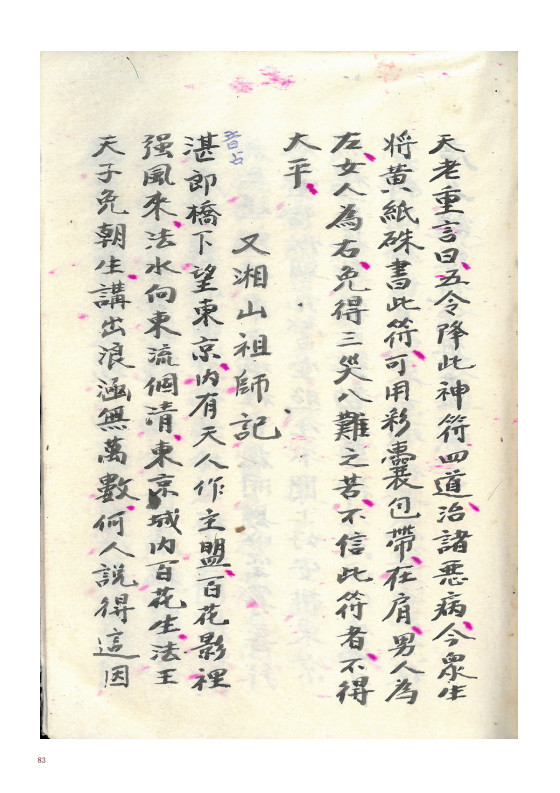 天老重言曰五令降此神符四道治諸惡病今衆生
将黄紙硃書此符可用彩囊包帶在肩男人為
左女人為右免得三灾八難之苦不信此符者不得
大平
又湘山祖師記
湛即橋下望東京内有天人作主盟百花影裡
音占
强風來法水向東流個清東京城内百花生法王
天子免朝生講出浪涵無萬數何人説得這因
83